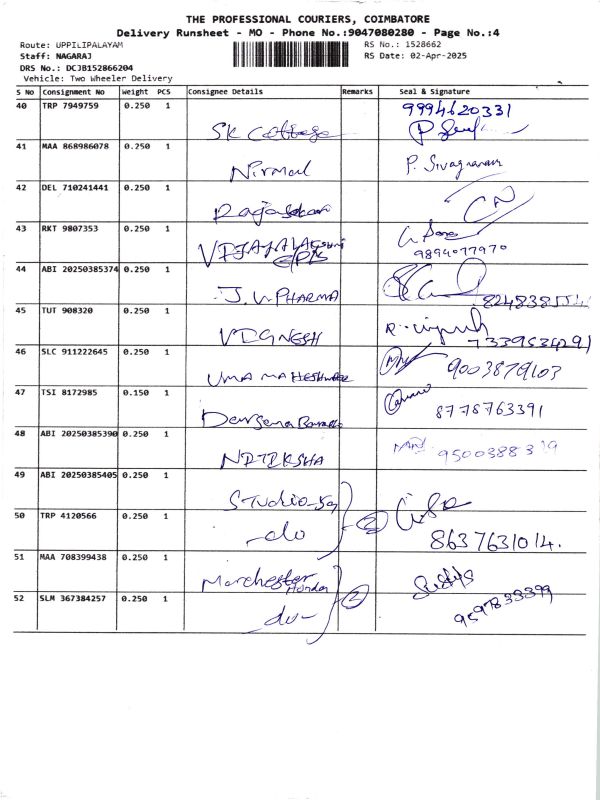 THE PROFESSIONAL COURIERS, COIMBATORE
Delivery Runsheet - MO - Phone No.:9047080280 - Page No.:4
Route: UPPILIPALAYAM RS No.: 1528662
Staff: NAGARAJ RS Date: 02-Apr-2025
DRS No.: DCJB152866204
Vehicle: Two Wheeler Delivery
S No Consignment No Weight PCS Consignee Details Remarks Seal & Signature
40 TRP 7949759 0.250 1 9994620331
SK Cottage
41 MAA 868986078 0.250 1 P. Sivagnanam
Nirmal
42 DEL 710241441 0.250 1
Rajasekar
43 RKT 9807353 0.250 1
VIJAYALAKSHMI 9894077970
44 ABI 20250385374 0.250 1
J.V PHARMA
45 TUT 908320 0.250 1
VIGNESH 7339534291
46 SLC 911222645 0.250 1 9003879103
UMA MAHESHWAR
47 TSI 8172985 0.150 1 8778763391
48 ABI 20250385390 0.250 1
NITIKSHA
49 ABI 20250385405 0.250 1
STUDIO-59
50 TRP 4120566 0.250 1 2
-do 8637631014.
51 MAA 708399438 0.250 1
Manchester Honda
52 SLM 367384257 0.250 1 2
-do- 9597833399